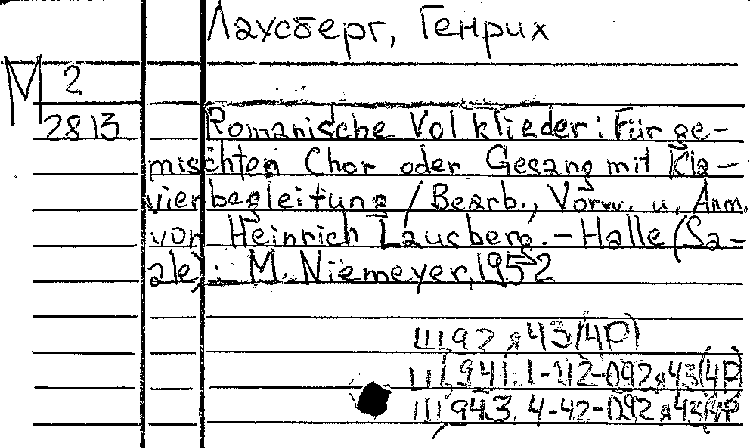 Лаусберг, Генрих
М 2
2813
Romanische Volklieder: Für ge-
mischten Chor oder Gesang mit Kla-
vierbegleitung / Bearb., Vorw. u. Anm.
von Heinrich Lausberg. – Halle (Sa-
ale): M. Niemeyer, 1952
Щ92я43(4Р)
Щ941.1-42-092я43(4Р)
Щ943.4-42-092я43(4Р)